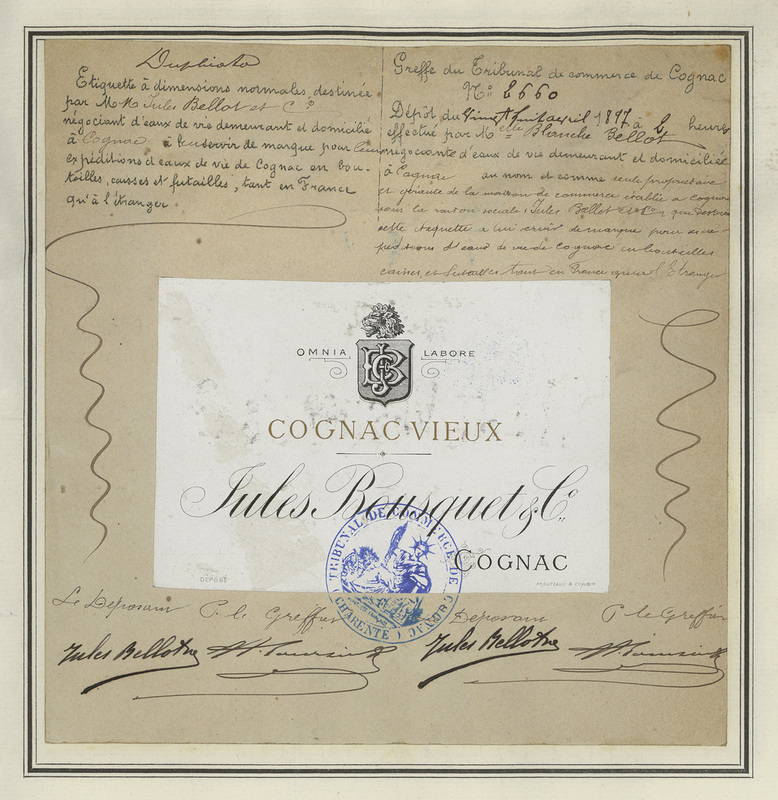 Duplicata
Etiquette à dimensions normales destinée
par M M Jules Bellot et Cº
négociant d'eaux de vie demeurant et domicilié
à Cognac à leur servir de marque pour leurs
expéditions d'eaux de vie de Cognac en bou-
teilles, caisses et futailles, tant en France
qu'à l'étranger
Greffe du Tribunal de commerce de Cognac
Nº 2660
Dépôt du vingt huit avril 1897 à 2 heures
effectué par Melle Blanche Bellot
négociante d'eaux de vie demeurant et domiciliée
à Cognac au nom et comme seule propriétaire
et gérante de la maison de commerce établie à Cognac
sous la raison sociale Jules Bellot et Co que destine
cette étiquette à lui servir de marque pour ses ex
péditions d'eaux de vie de Cognac en bouteilles
caisses, et futailles tant en France qu'à l'Etranger
OMNIA LABORE
JBC
COGNAC VIEUX
Jules Bousquet & Cº.
COGNAC
DÉPOSÉ
TRIBUNAL DE COMMERCE DE COGNAC
(CHARENTE)
Le Déposant P. le Greffier
Déposant P. le Greffier
Jules Bellot
Jules Bellot